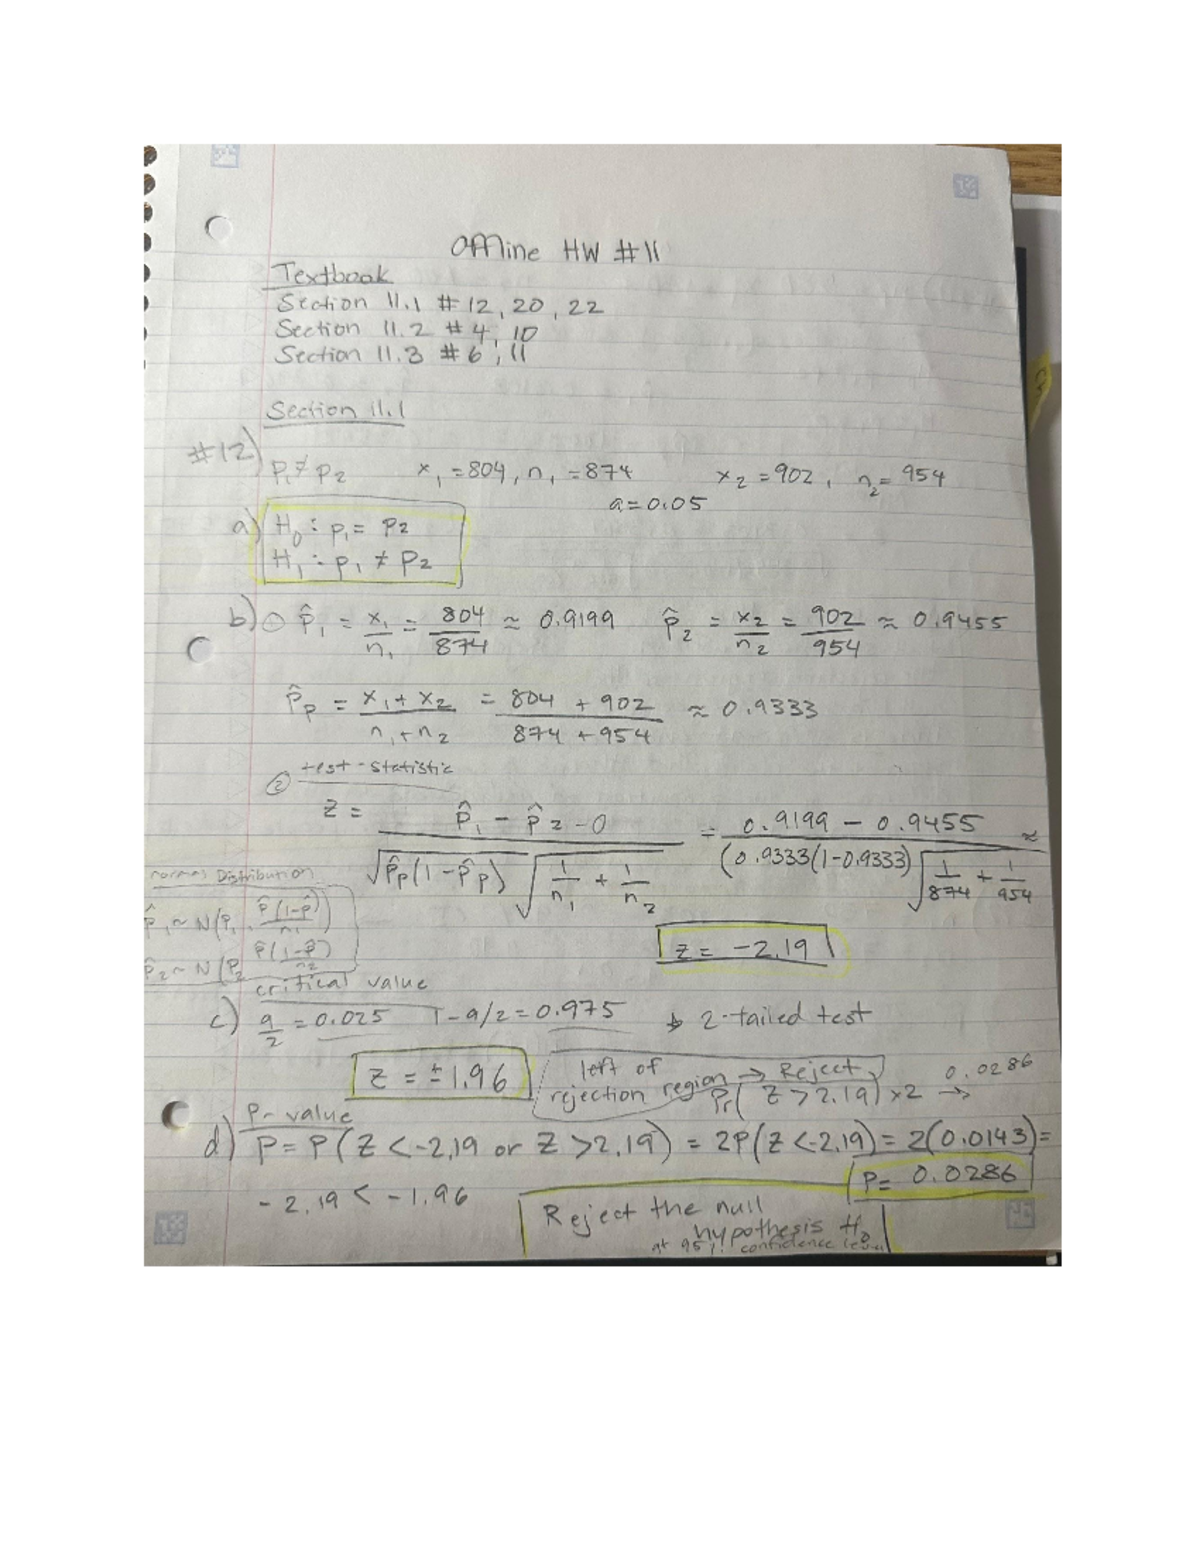 Offline HW #11
Textbook
Section 11.1 # 12, 20, 22
Section 11.2 # 4, 10
Section 11.3 # 6, 11
Section 11.1
#12) p₁ ≠ p₂ x₁ = 804, n₁ = 874 x₂ = 902, n₂ = 954
a = 0.05
a) H₀ : p₁ = p₂
H₁ : p₁ ≠ p₂
b) ① p̂₁ = x₁/n₁ = 804/874 ≈ 0.9199 p̂₂ = x₂/n₂ = 902/954 ≈ 0.9455
p̂p = x₁ + x₂ / n₁ + n₂ = 804 + 902 / 874 + 954 ≈ 0.9333
② test-statistic
z = p̂₁ - p̂₂ - 0 / √p̂p(1 - p̂p) √1/n₁ + 1/n₂ = 0.9199 - 0.9455 / (0.9333(1-0.9333) √1/874 + 1/954 ≈
normal Distribution
p̂₁ ~ N(p₁, p̂(1-p̂)/n₁)
p̂₂ ~ N(p₂ p̂(1-p̂)/n₂
z = -2.19
critical value
c) a/2 = 0.025 1 - a/2 = 0.975 → 2-tailed test
z = ±1.96
left of
rejection region → Reject
Pr( Z > 2.19) x2 → 0.0286
P- value
d) P = P(Z < -2.19 or Z > 2.19) = 2P(Z < -2.19) = 2(0.0143) =
P = 0.0286
-2.19 < -1.96
Reject the null
hypothesis H₀
at 95% confidence level